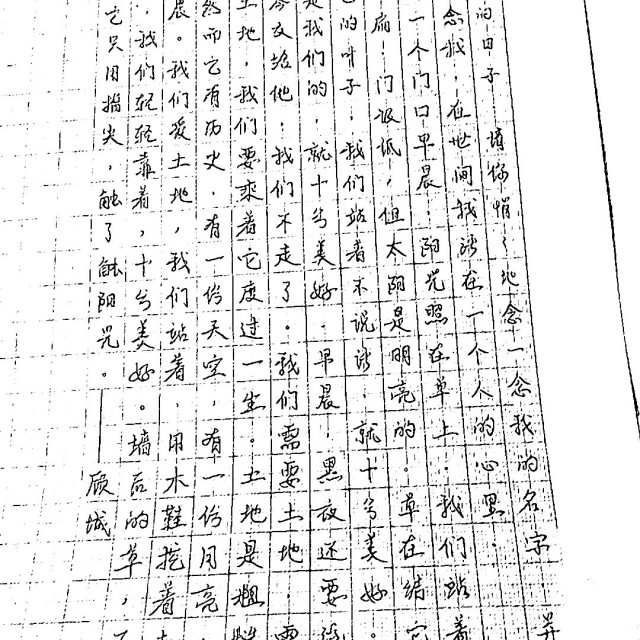 的日子 请你悄悄地念一念我的名字
念我，在世间我活在一个人的心里：
一个门口早晨，阳光照在草上：我们站着
扇门很低，但太阳是明亮的。草在结它
的叶子；我们站着不说话，就十分美好。
是我们的，就十分美好。早晨，黑夜还要
交给他；我们不走了。我们需要土地，需
土地，我们要乘着它度过一生。土地是粗糙
然而它有历史，有一份天空，有一份月亮
晨。我们爱土地，我们站着，用木鞋挖着
，我们轻轻靠着，十分美好。墙后的草，
它只用指尖，触了触阳光。——顾城